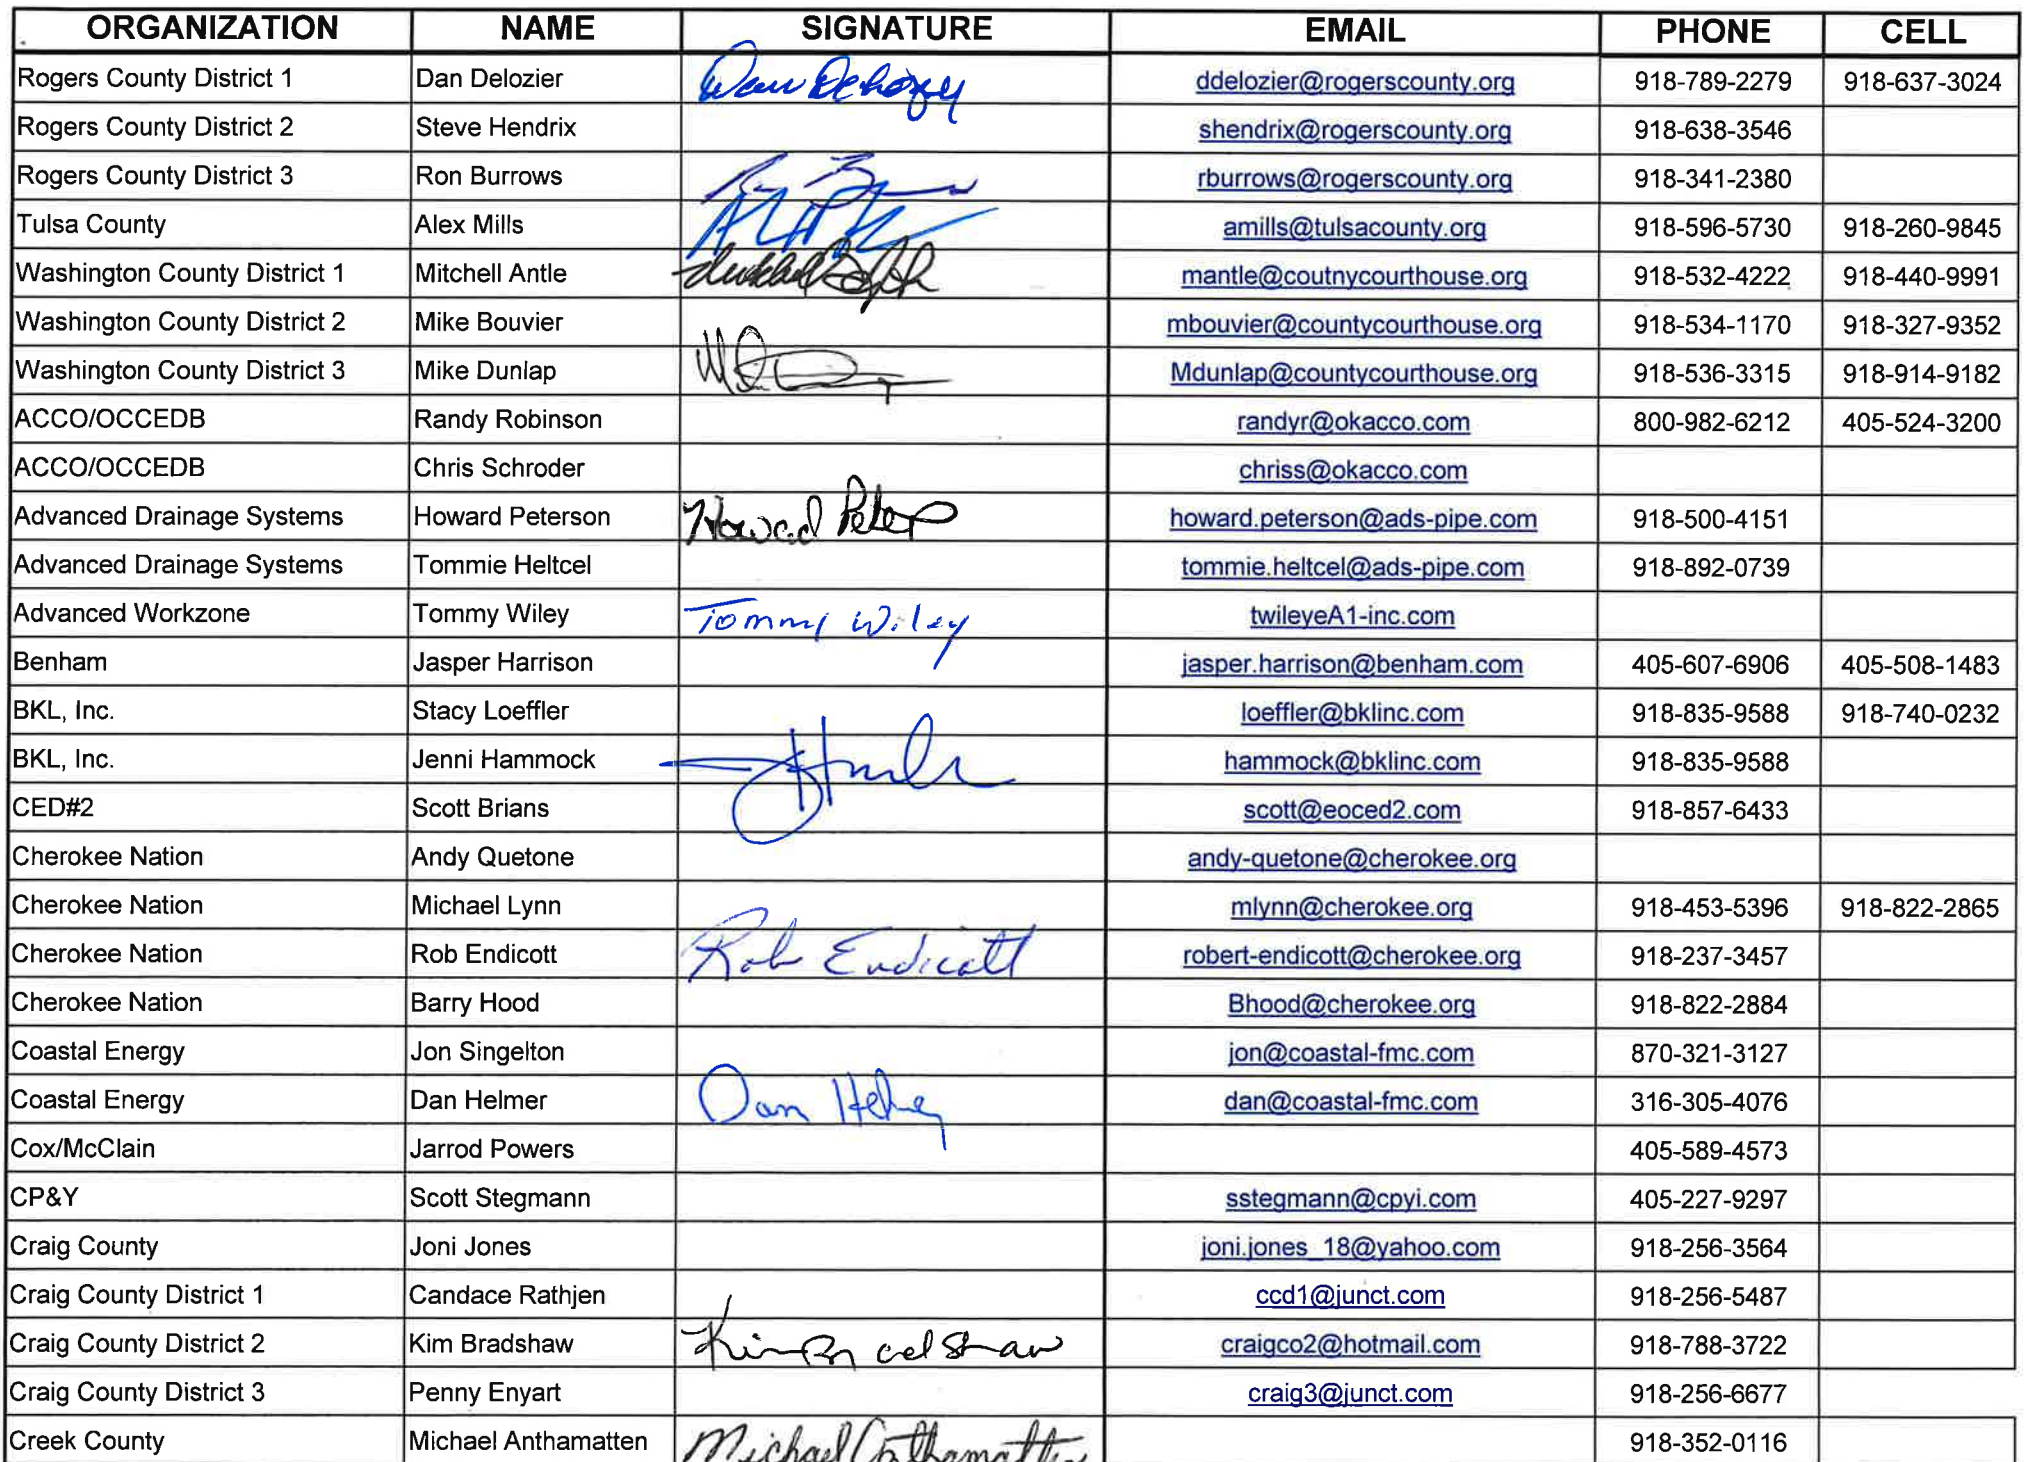 ORGANIZATION NAME SIGNATURE EMAIL PHONE CELL
Rogers County District 1 Dan Delozier Dan Delozier ddelozier@rogerscounty.org 918-789-2279 918-637-3024
Rogers County District 2 Steve Hendrix shendrix@rogerscounty.org 918-638-3546
Rogers County District 3 Ron Burrows rburrows@rogerscounty.org 918-341-2380
Tulsa County Alex Mills amills@tulsacounty.org 918-596-5730 918-260-9845
Washington County District 1 Mitchell Antle mantle@coutnycourthouse.org 918-532-4222 918-440-9991
Washington County District 2 Mike Bouvier mbouvier@countycourthouse.org 918-534-1170 918-327-9352
Washington County District 3 Mike Dunlap Mdunlap@countycourthouse.org 918-536-3315 918-914-9182
ACCO/OCCEDB Randy Robinson randyr@okacco.com 800-982-6212 405-524-3200
ACCO/OCCEDB Chris Schroder chriss@okacco.com
Advanced Drainage Systems Howard Peterson Howard Peterson howard.peterson@ads-pipe.com 918-500-4151
Advanced Drainage Systems Tommie Heltcel tommie.heltcel@ads-pipe.com 918-892-0739
Advanced Workzone Tommy Wiley Tommy Wiley twileyeA1-inc.com
Benham Jasper Harrison jasper.harrison@benham.com 405-607-6906 405-508-1483
BKL, Inc. Stacy Loeffler loeffler@bklinc.com 918-835-9588 918-740-0232
BKL, Inc. Jenni Hammock hammock@bklinc.com 918-835-9588
CED#2 Scott Brians scott@eoced2.com 918-857-6433
Cherokee Nation Andy Quetone andy-quetone@cherokee.org
Cherokee Nation Michael Lynn mlynn@cherokee.org 918-453-5396 918-822-2865
Cherokee Nation Rob Endicott Rob Endicott robert-endicott@cherokee.org 918-237-3457
Cherokee Nation Barry Hood Bhood@cherokee.org 918-822-2884
Coastal Energy Jon Singelton jon@coastal-fmc.com 870-321-3127
Coastal Energy Dan Helmer Dan Helmer dan@coastal-fmc.com 316-305-4076
Cox/McClain Jarrod Powers 405-589-4573
CP&Y Scott Stegmann sstegmann@cpyi.com 405-227-9297
Craig County Joni Jones joni.jones_18@yahoo.com 918-256-3564
Craig County District 1 Candace Rathjen ccd1@junct.com 918-256-5487
Craig County District 2 Kim Bradshaw Kim Bradshaw craigco2@hotmail.com 918-788-3722
Craig County District 3 Penny Enyart craig3@junct.com 918-256-6677
Creek County Michael Anthamatten Michael Anthamatten 918-352-0116